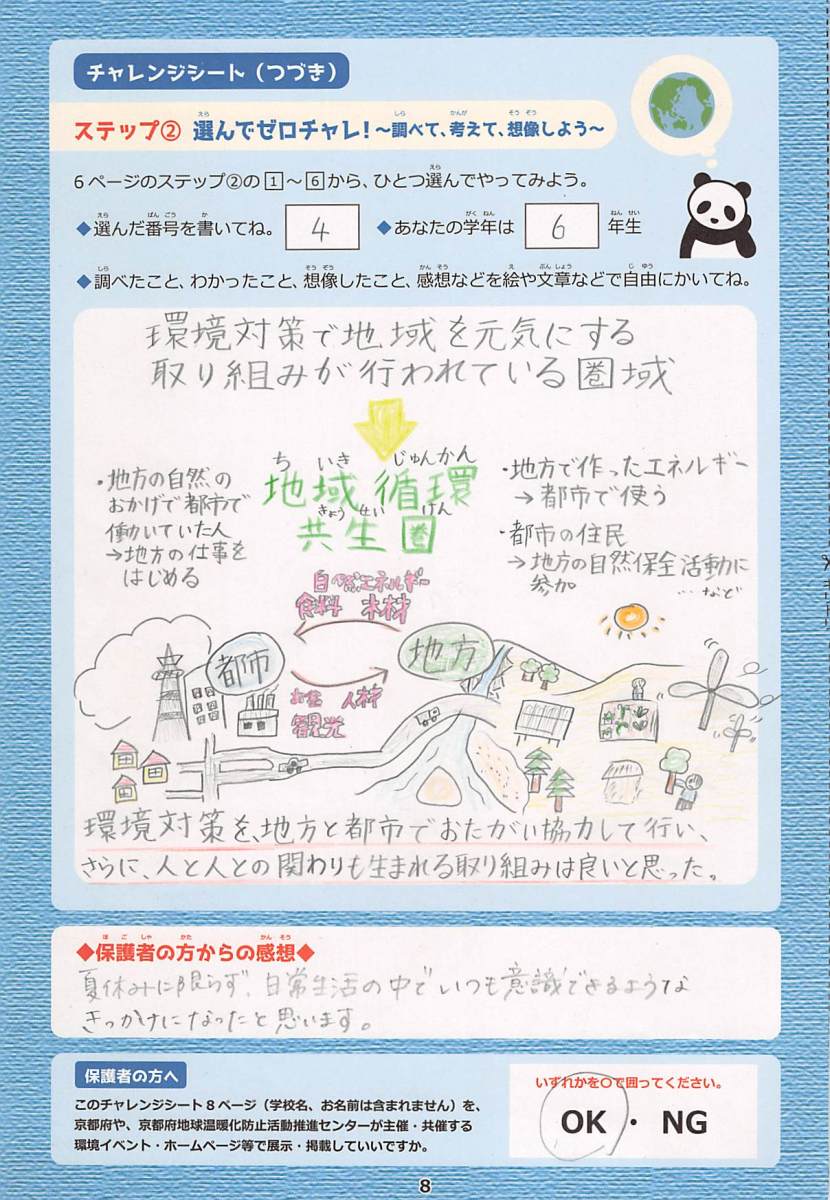 チャレンジシート（つづき）
ステップ② 選んでゼロチャレ！～調べて、考えて、想像しよう～
6ページのステップ②の1～6から、ひとつ選んでやってみよう。
◆選んだ番号を書いてね。 4 ◆あなたの学年は 6 年生
◆調べたこと、わかったこと、想像したこと、感想などを絵や文章などで自由にかいてね。
環境対策で地域を元気にする
取り組みが行われている圏域
ちいきじゅんかん
地域循環
きょうせいけん
共生圏
・地方の自然の
おかげで都市で
働いていた人
→地方の仕事を
はじめる
・地方で作ったエネルギー
→都市で使う
・都市の住民
→地方の自然保全活動に
参加
…など
自然エネルギー
食料 木材
都市
地方
お金 人材
観光
環境対策を、地方と都市でおたがい協力して行い、
さらに、人と人との関わりも生まれる取り組みは良いと思った。
◆保護者の方からの感想◆
夏休みに限らず、日常生活の中でいつも意識できるような
きっかけになったと思います。
保護者の方へ
このチャレンジシート8ページ（学校名、お名前は含まれません）を、
京都府や、京都府地球温暖化防止活動推進センターが主催・共催する
環境イベント・ホームページ等で展示・掲載していいですか。
いずれかを○で囲ってください。
OK ・ NG
8